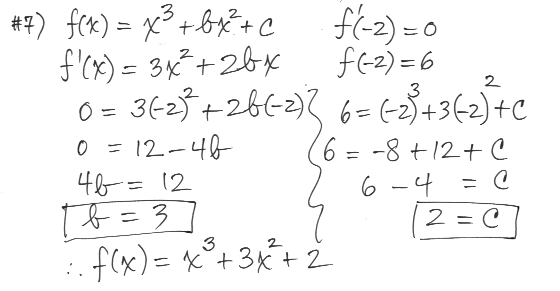 #7) f(x) = x³ + bx² + c
f'(x) = 3x² + 2bx
0 = 3(-2)² + 2b(-2)
0 = 12 - 4b
4b = 12
b = 3
f'(-2) = 0
f(-2) = 6
6 = (-2)³ + 3(-2)² + C
6 = -8 + 12 + C
6 - 4 = C
2 = C
∴ f(x) = x³ + 3x² + 2